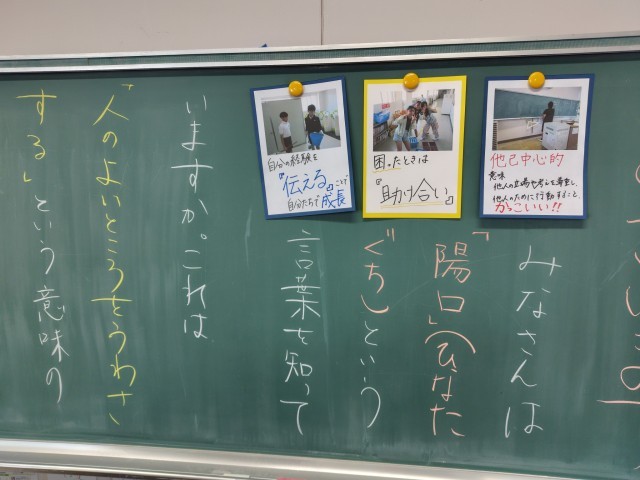 みなさんは
「陽口」(ひなた
ぐち)という
言葉を知って
いますか。これは
「人のよいところをうわさ
する」という意味の
自分の経験を
『伝える』ことで
自分たちで成長
困ったときは
『助け合い』
他己中心的
意味
他人の立場や考えを尊重し、
他人のために行動すること。
かっこいい!!